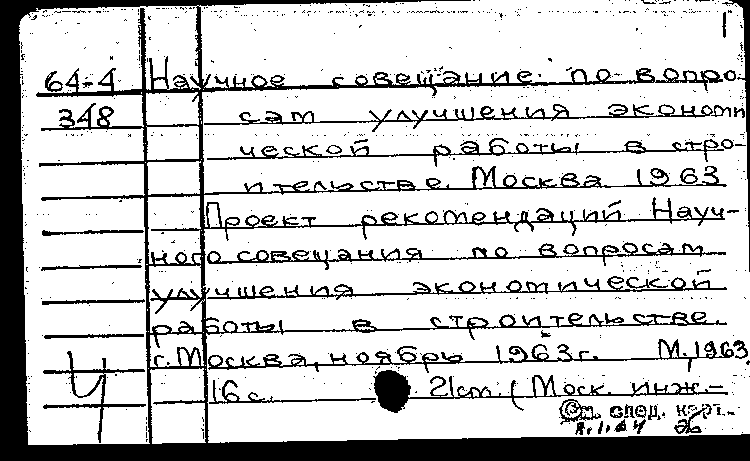 64-4 Научное совещание по вопро-
348 сам улучшения экономи
ческой работы в стро-
ительстве. Москва. 1963
Проект рекомендаций Науч-
ного совещания по вопросам
улучшения экономической
работы в строительстве.
г. Москва, ноябрь 1963 г. М, 1963,
16 с. 21 см. (Моск. инж.-
См. след. карт.
Ч